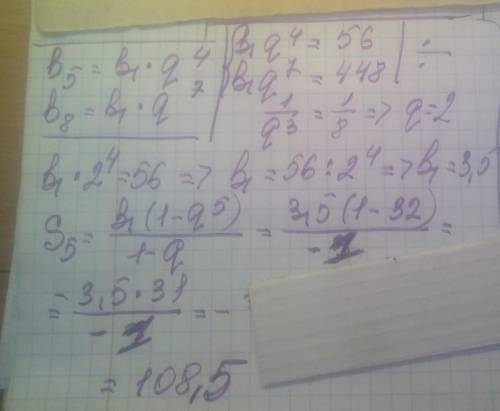 b₅ = b₁ · q⁴
b₈ = b₁ · q⁷
b₁q⁴ = 56
b₁q⁷ = 448 | ÷
1/q³ = 1/8 => q=2
b₁ · 2⁴ = 56 => b₁ = 56 : 2⁴ => b₁ = 3,5
S₅ = b₁(1-q⁵)/1-q = 3,5(1-32)/-1 =
= -3,5·31/-1 = -
= 108,5